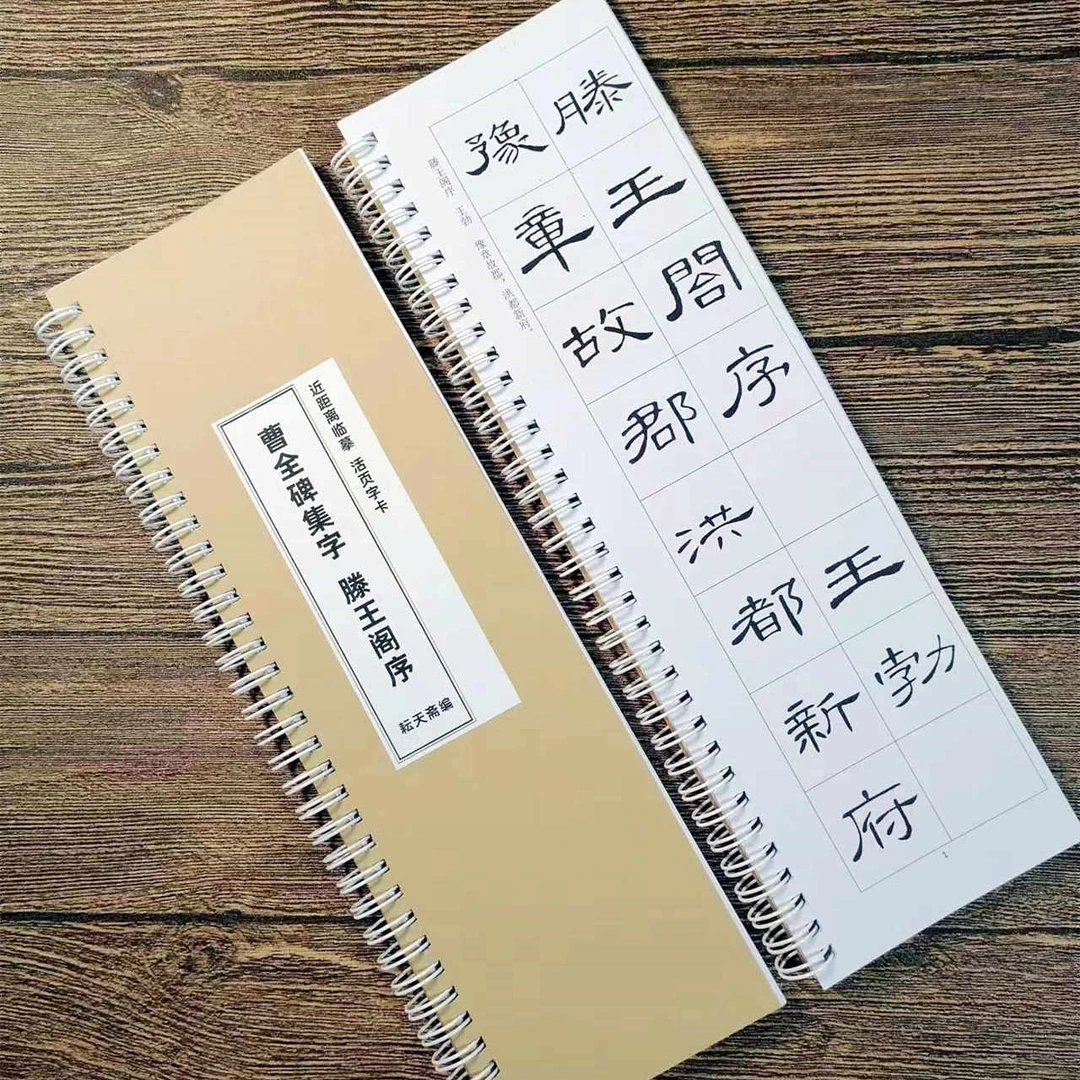 近距离临摹 活页字卡
曹全碑集字 滕王阁序
耘天斋编
滕王閤序 王勃
豫章故郡洪都新府
滕王阁序 王勃 豫章故郡，洪都新府。
1